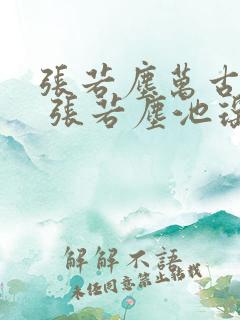 張若塵萬古
張若塵池
解解不語
未经同意禁止转载